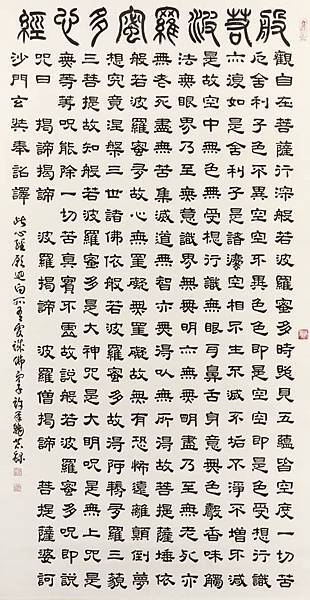 般若波羅蜜多心經
觀自在菩薩行深般若波羅蜜多時照見五蘊皆空度一切苦
厄舍利子色不異空空不異色色即是空空即是色受想行識
亦復如是舍利子是諸法空相不生不滅不垢不淨不增不減
是故空中無色無受想行識無眼耳鼻舌身意無色聲香味觸
法無眼界乃至無意識界無無明亦無無明盡乃至無老死亦
無老死盡無苦集滅道無智亦無得以無所得故菩提薩埵依
般若波羅蜜多故心無罣礙無罣礙故無有恐怖遠離顛倒夢
想究竟涅槃三世諸佛依般若波羅蜜多故得阿耨多羅三藐
三菩提故知般若波羅蜜多是大神咒是大明咒是無上咒是
無等等咒能除一切苦真實不虛故說般若波羅蜜多咒即說
咒曰 揭諦揭諦 波羅揭諦 波羅僧揭諦 菩提薩婆訶
沙門玄奘奉詔譯 此心經願迴向